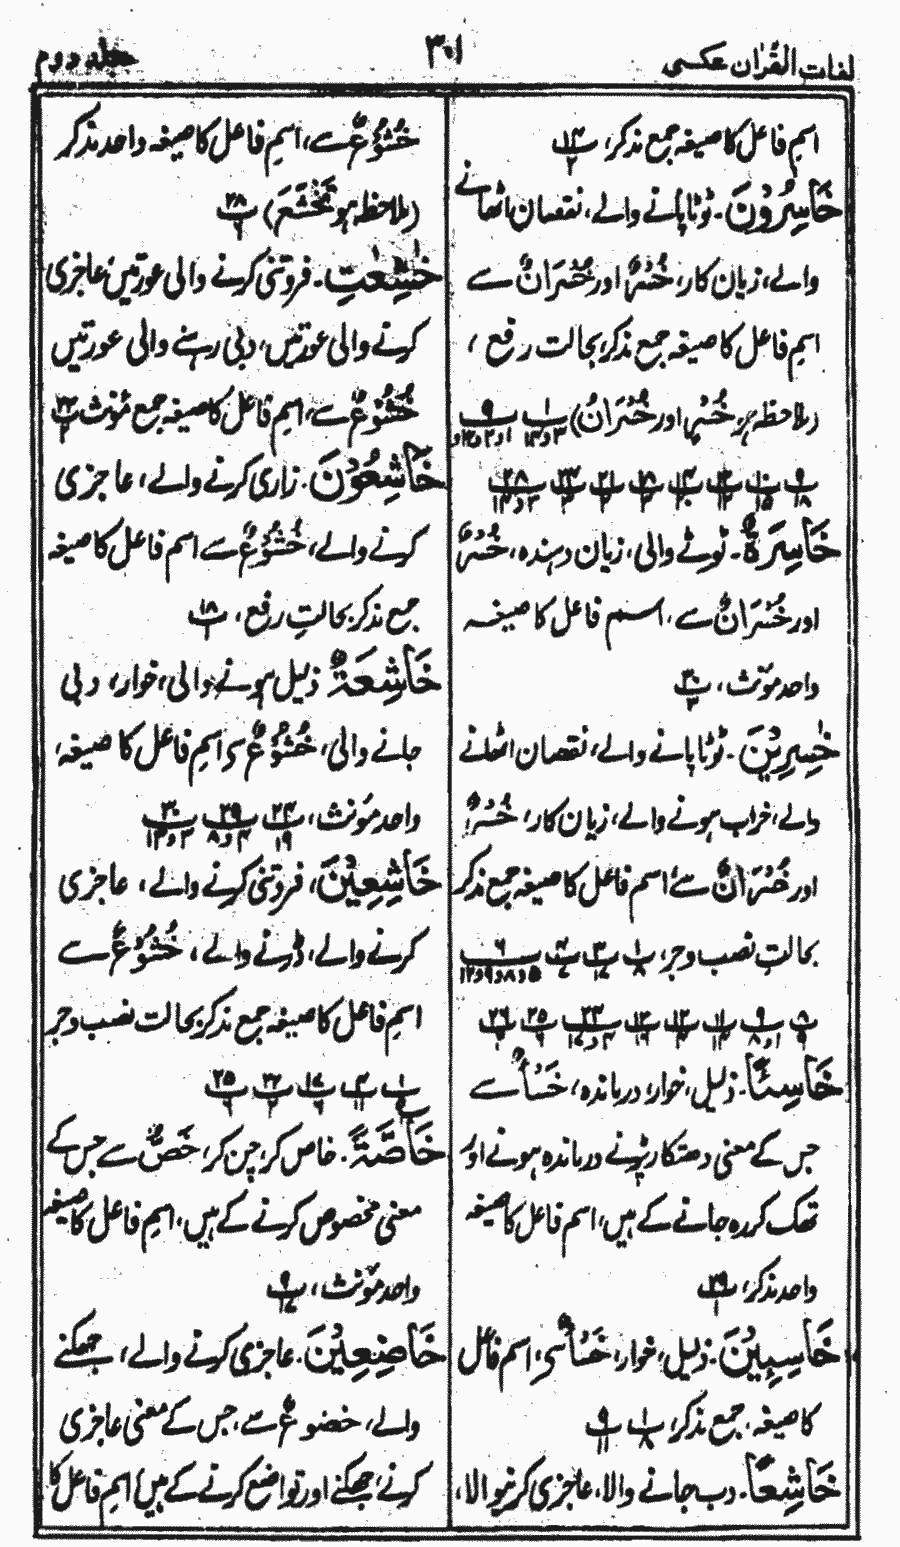 لغات القرآن عکسی
۳۰۱
جلد دوم
اسم فاعل کا صیغہ جمع مذکر، پ ۱۴ ۲
خَاسِرُوْنَ۔ ٹوٹا پانے والے، نقصان اٹھانے
والے، زیان کار، خُسْرٌ اور خُسْرَانٌ سے
اسم فاعل کا صیغہ جمع مذکر، بحالت رفع،
(ملاحظہ ہو خُسْرٍ اور خُسْرَانٌ)
خَاسِرَةٌ۔ ٹوٹے والی، زیان دہندہ، خُسْرٌ
اور خُسْرَانٌ سے، اسم فاعل کا صیغہ
واحد مؤنث،
خٰسِرِیْنَ۔ ٹوٹا پانے والے، نقصان اٹھانے
والے، خراب ہونے والے، زیان کار، خُسْرٌ
اور خُسْرَانٌ سے، اسم فاعل کا صیغہ جمع مذکر
بحالتِ نصب و جر،
خَاسِئًا۔ ذلیل، خوار، درماندہ، خَسْأٌ سے
جس کے معنی دھتکار پڑنے درماندہ ہونے اور
تھک کر رہ جانے کے ہیں، اسم فاعل کا صیغہ
واحد مذکر،
خَاسِئِیْنَ۔ ذلیل، خوار، خَسْأٌ سی، اسم فاعل
کا صیغہ، جمع مذکر،
خَاشِعًا۔ دب جانے والا، عاجزی کرنیوالا،
خُشُوْعٌ سے، اسمِ فاعل کا صیغہ واحد مذکر
(ملاحظہ ہو تَخْشَعَ)
خٰشِعٰتِ۔ فروتنی کرنے والی عورتیں، عاجزی
کرنے والی عورتیں، دبی رہنے والی عورتیں
خُشُوْعٌ سے، اسمِ فاعل کا صیغہ جمع مؤنث
خَاشِعُوْنَ۔ زاری کرنے والے، عاجزی
کرنے والے، خُشُوْعٌ سے اسم فاعل کا صیغہ
جمع مذکر بحالتِ رفع،
خَاشِعَةً ذلیل ہونے والی، خوار، دبی
جانے والی، خُشُوْعٌ سی اسمِ فاعل کا صیغہ،
واحد مؤنث،
خَاشِعِیْنَ، فروتنی کرنے والے، عاجزی
کرنے والے، ڈرنے والے، خُشُوْعٌ سے
اسمِ فاعل کا صیغہ جمع مذکر بحالت نصب و جر
خَاصَّةً۔ خاص کر، چن کر، خَصٌّ سے جس کے
معنی مخصوص کرنے کے ہیں، اسمِ فاعل کا صیغہ
واحد مؤنث،
خَاضِعِیْنَ۔ عاجزی کرنے والے، جھکنے
والے، خضوعٌ سے، جس کے معنی عاجزی
کرنے، جھکنے اور تواضع کرنے کے ہیں اسمِ فاعل کا